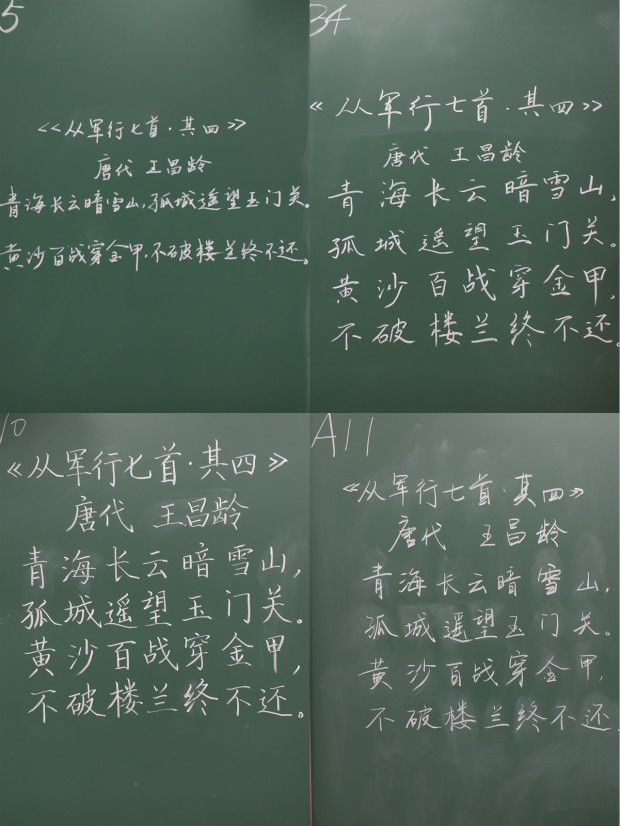 5
《从军行七首·其四》
唐代 王昌龄
青海长云暗雪山,孤城遥望玉门关。
黄沙百战穿金甲,不破楼兰终不还。
34
《从军行七首·其四》
唐代 王昌龄
青海长云暗雪山,
孤城遥望玉门关。
黄沙百战穿金甲,
不破楼兰终不还。
10
《从军行七首·其四》
唐代 王昌龄
青海长云暗雪山,
孤城遥望玉门关。
黄沙百战穿金甲,
不破楼兰终不还。
A11
《从军行七首·其四》
唐代 王昌龄
青海长云暗雪山,
孤城遥望玉门关。
黄沙百战穿金甲,
不破楼兰终不还.